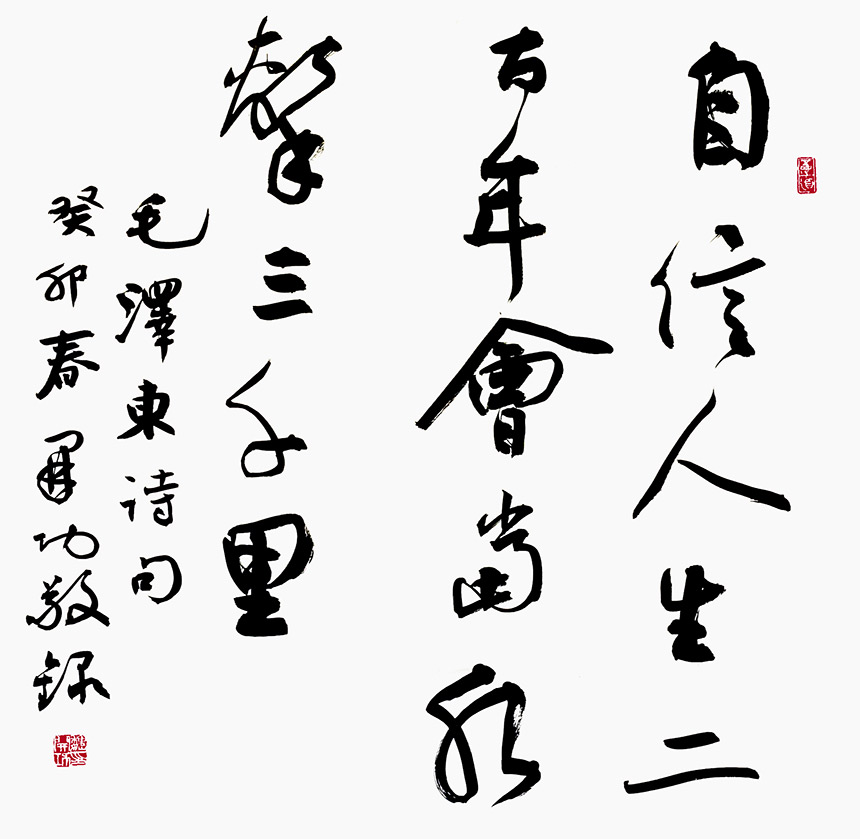 自信人生二
百年會當水
擊三千里
毛澤東詩句
癸卯春開功敬錄